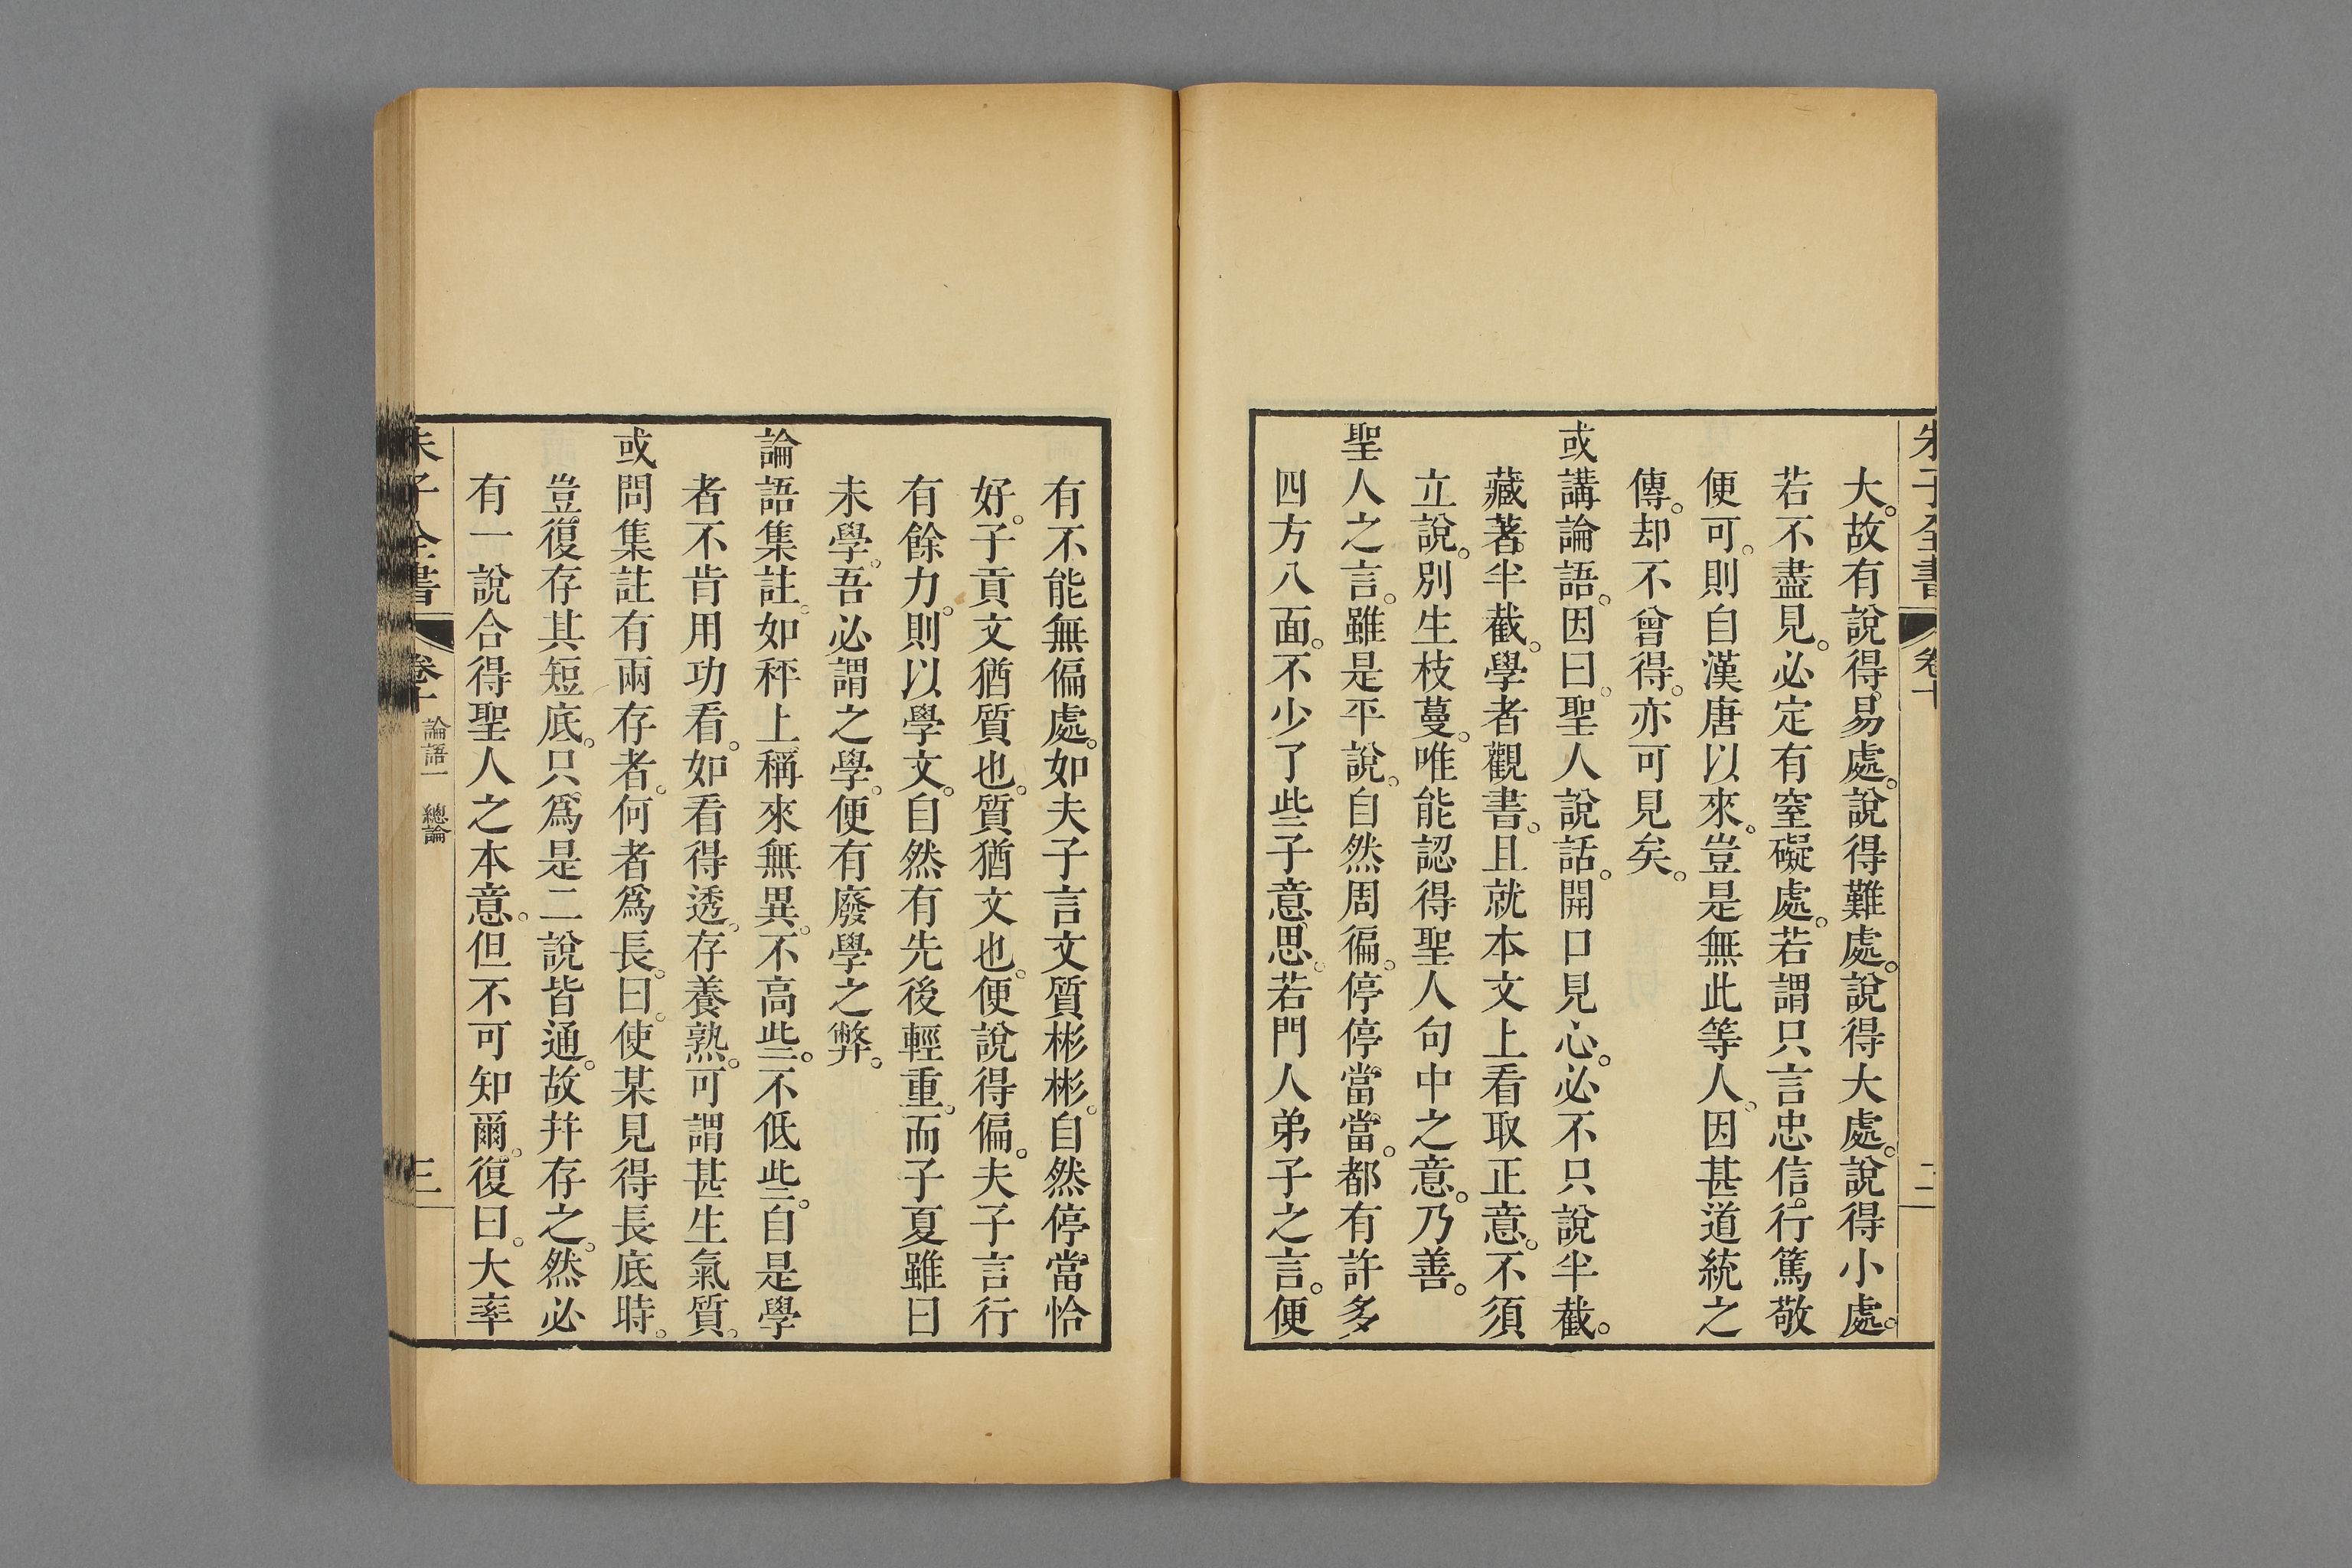 朱子全書 卷十 二
大。故有說得易處。說得難處。說得大處。說得小處。
若不盡見。必定有窒礙處。若謂只言忠信。行篤敬
便可。則自漢唐以來。豈是無此等人。因甚道統之
傳。却不曾得。亦可見矣。
或講論語。因曰。聖人說話。開口見心。必不只說半截。
藏著半截。學者觀書。且就本文上看取正意。不須
立說。別生枝蔓。唯能認得聖人句中之意。乃善。
聖人之言。雖是平說。自然周徧。停停當當。都有許多
四方八面。不少了些子意思。若門人弟子之言。便
有不能無偏處。如夫子言文質彬彬。自然停當恰
好。子貢文猶質也。質猶文也。便說得偏。夫子言行
有餘力。則以學文。自然有先後輕重。而子夏雖曰
未學。吾必謂之學。便有廢學之弊。
論語集註。如秤上稱來無異。不高些。不低些。自是學
者不肯用功看。如看得透。存養熟。可謂甚生氣質。
或問集註有兩存者。何者爲長。曰。使某見得長底時。
豈復存其短底。只爲是二說皆通。故幷存之。然必
有一說合得聖人之本意。但不可知爾。復曰。大率
朱子全書 卷十 論語一 總論 三